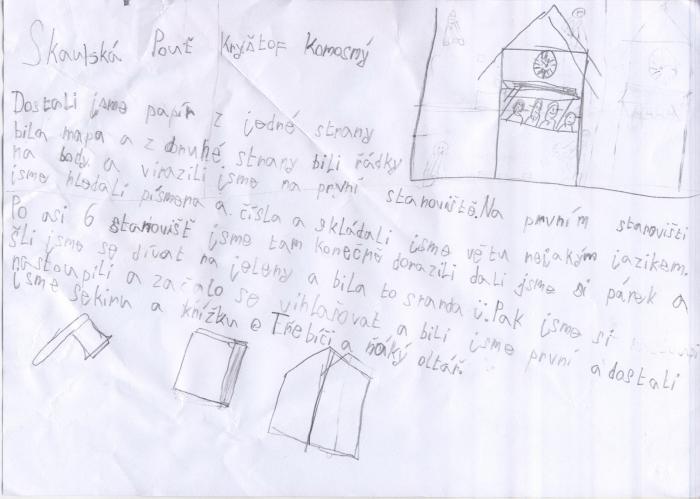 Skautská Pouť Kryštof Komosný
Dostali jsme papír z jedné strany
bila mapa a z druhé strany bili řádky
na body a virazili jsme na první stanoviště. Na prvním stanovišti
jsme hledali písmena a čísla a skládali jsme větu nejakým jazikem.
Po asi 6 stanovišť jsme tam konečně dorazili dali jsme si párek a
šli jsme se dívat na jeleny a bila to sranda ü. Pak jsme si
nastoupili a začalo se vihlašovat a bili jsme první a dostali
jsme sekiru a knížku o Třebíči a ňáký oltář.